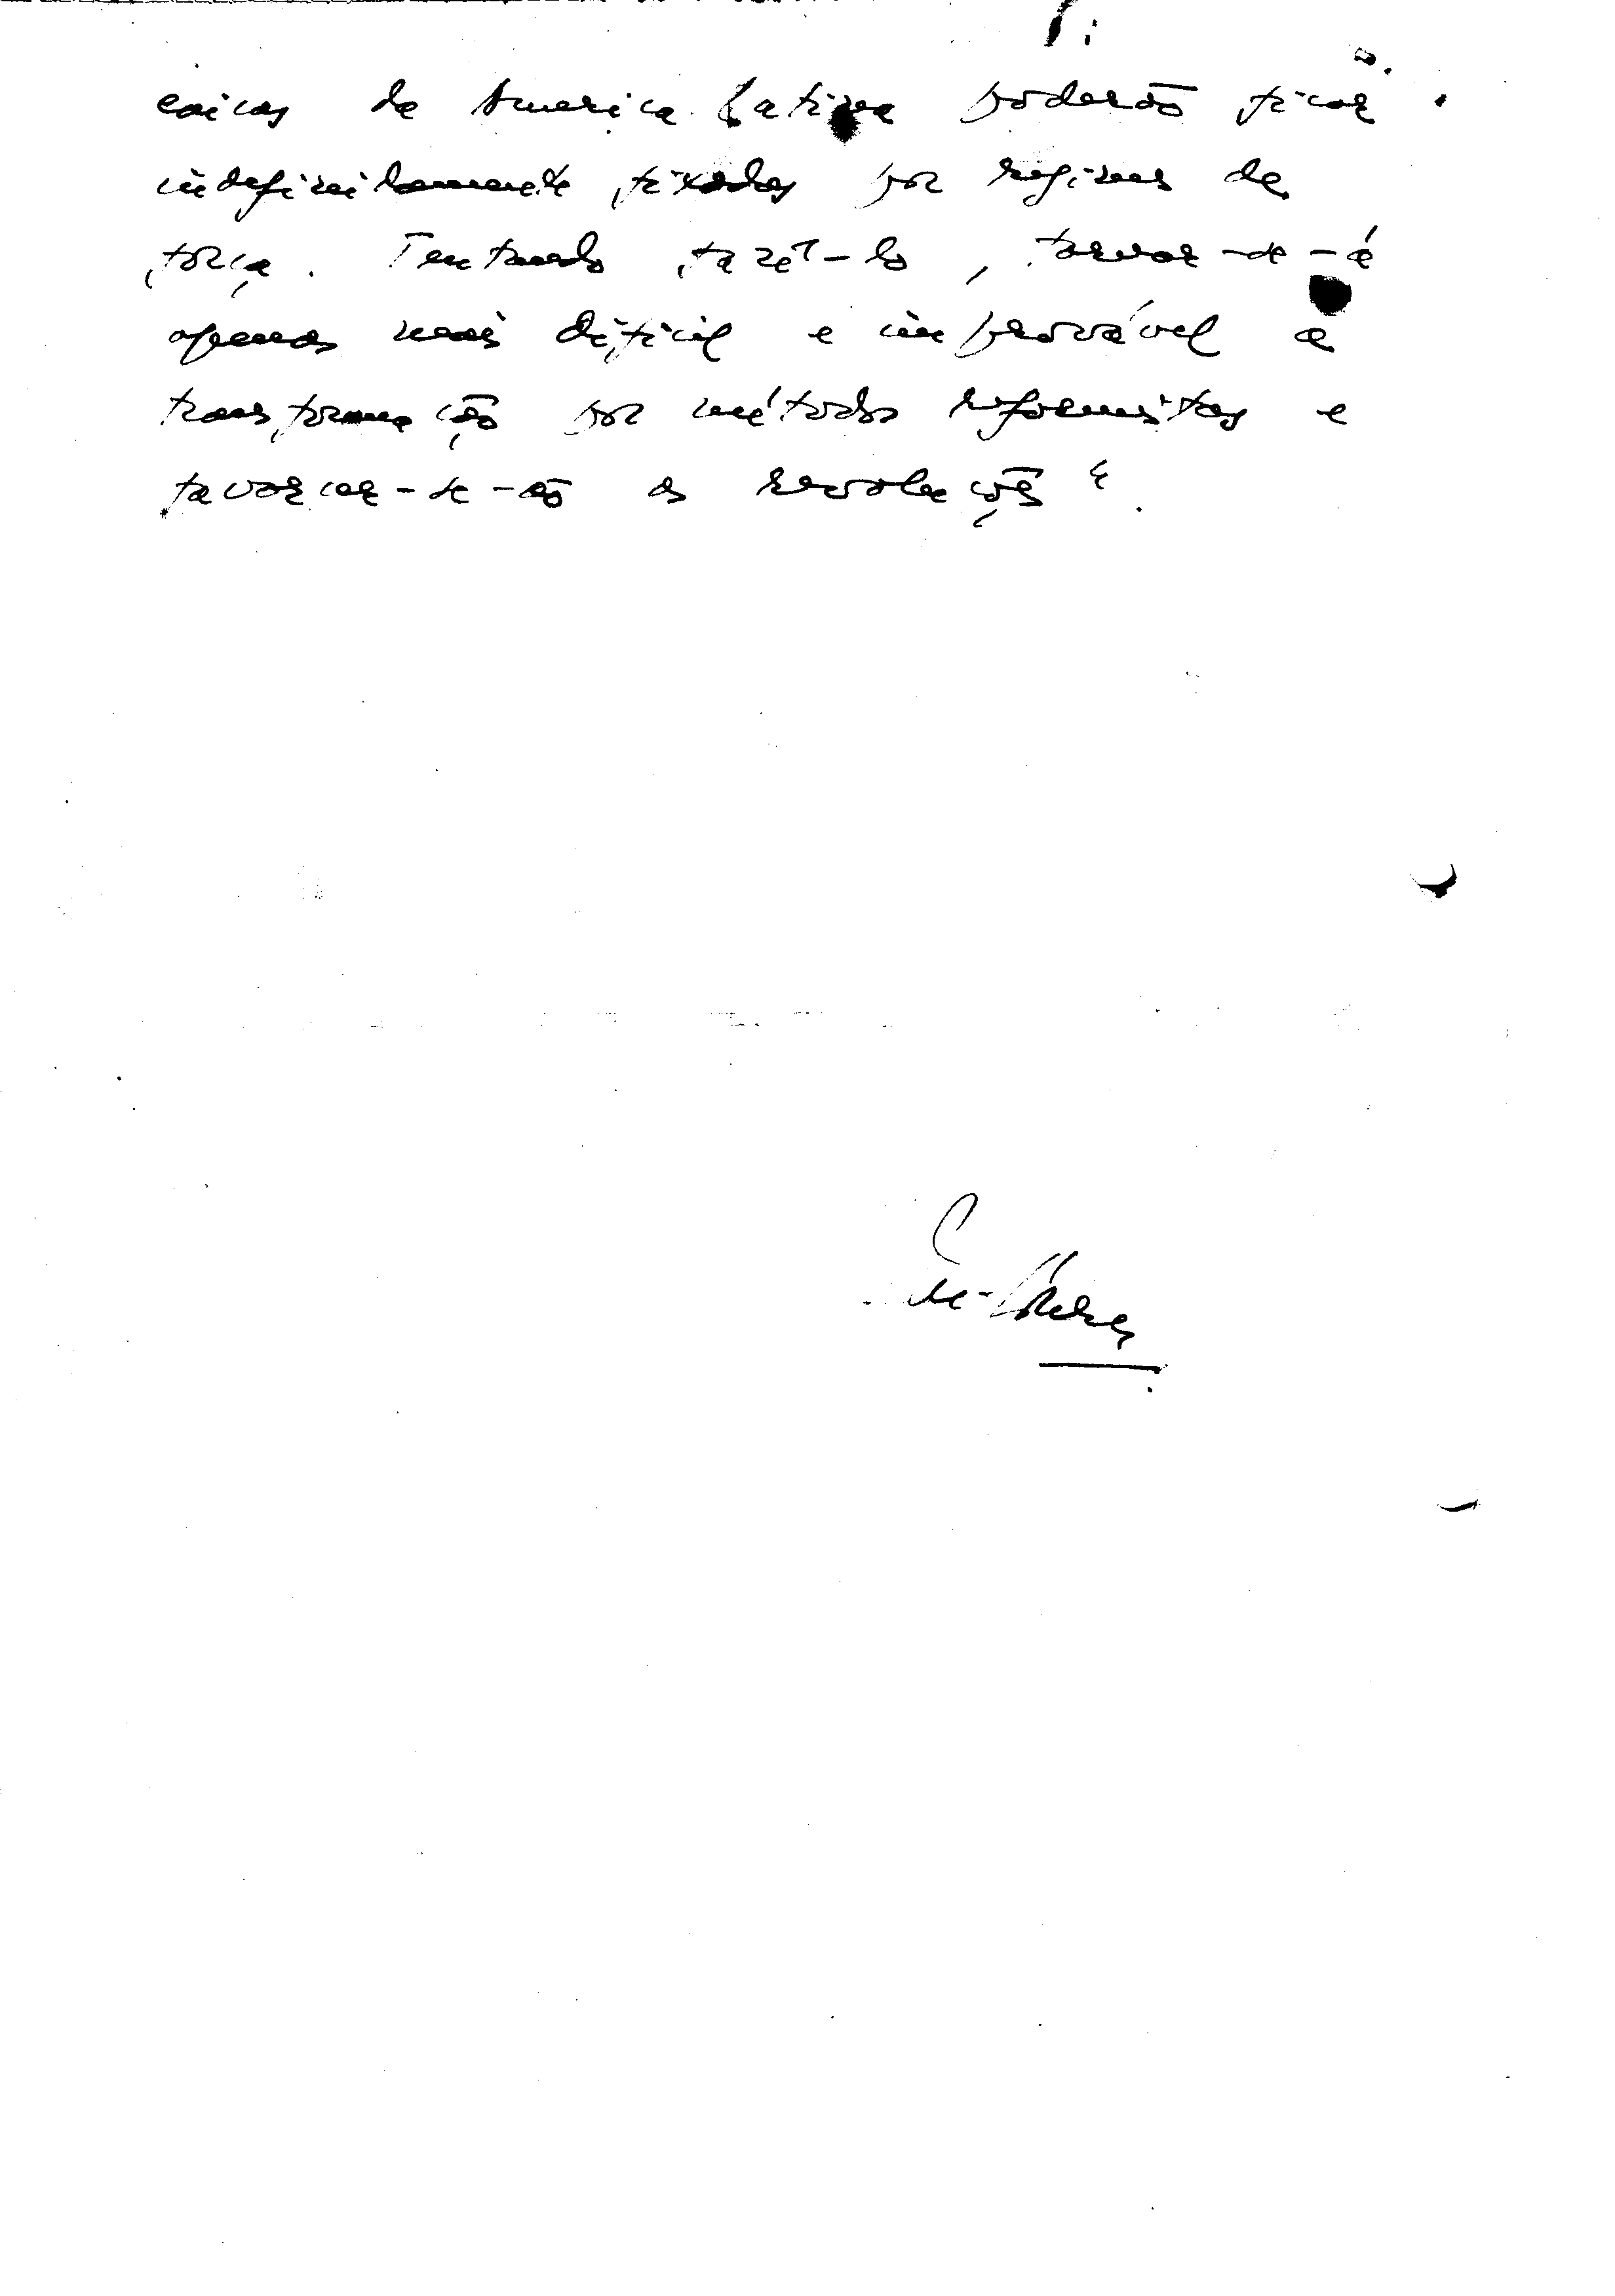 caicas da America Latina poderão ficar
indefinidamente fixadas por regimes de
força. Tentando fazê-lo, tornar-se-á
apenas mais difícil e improvável a
transformação por métodos reformistas e
favorecer-se-ão as revoluções".